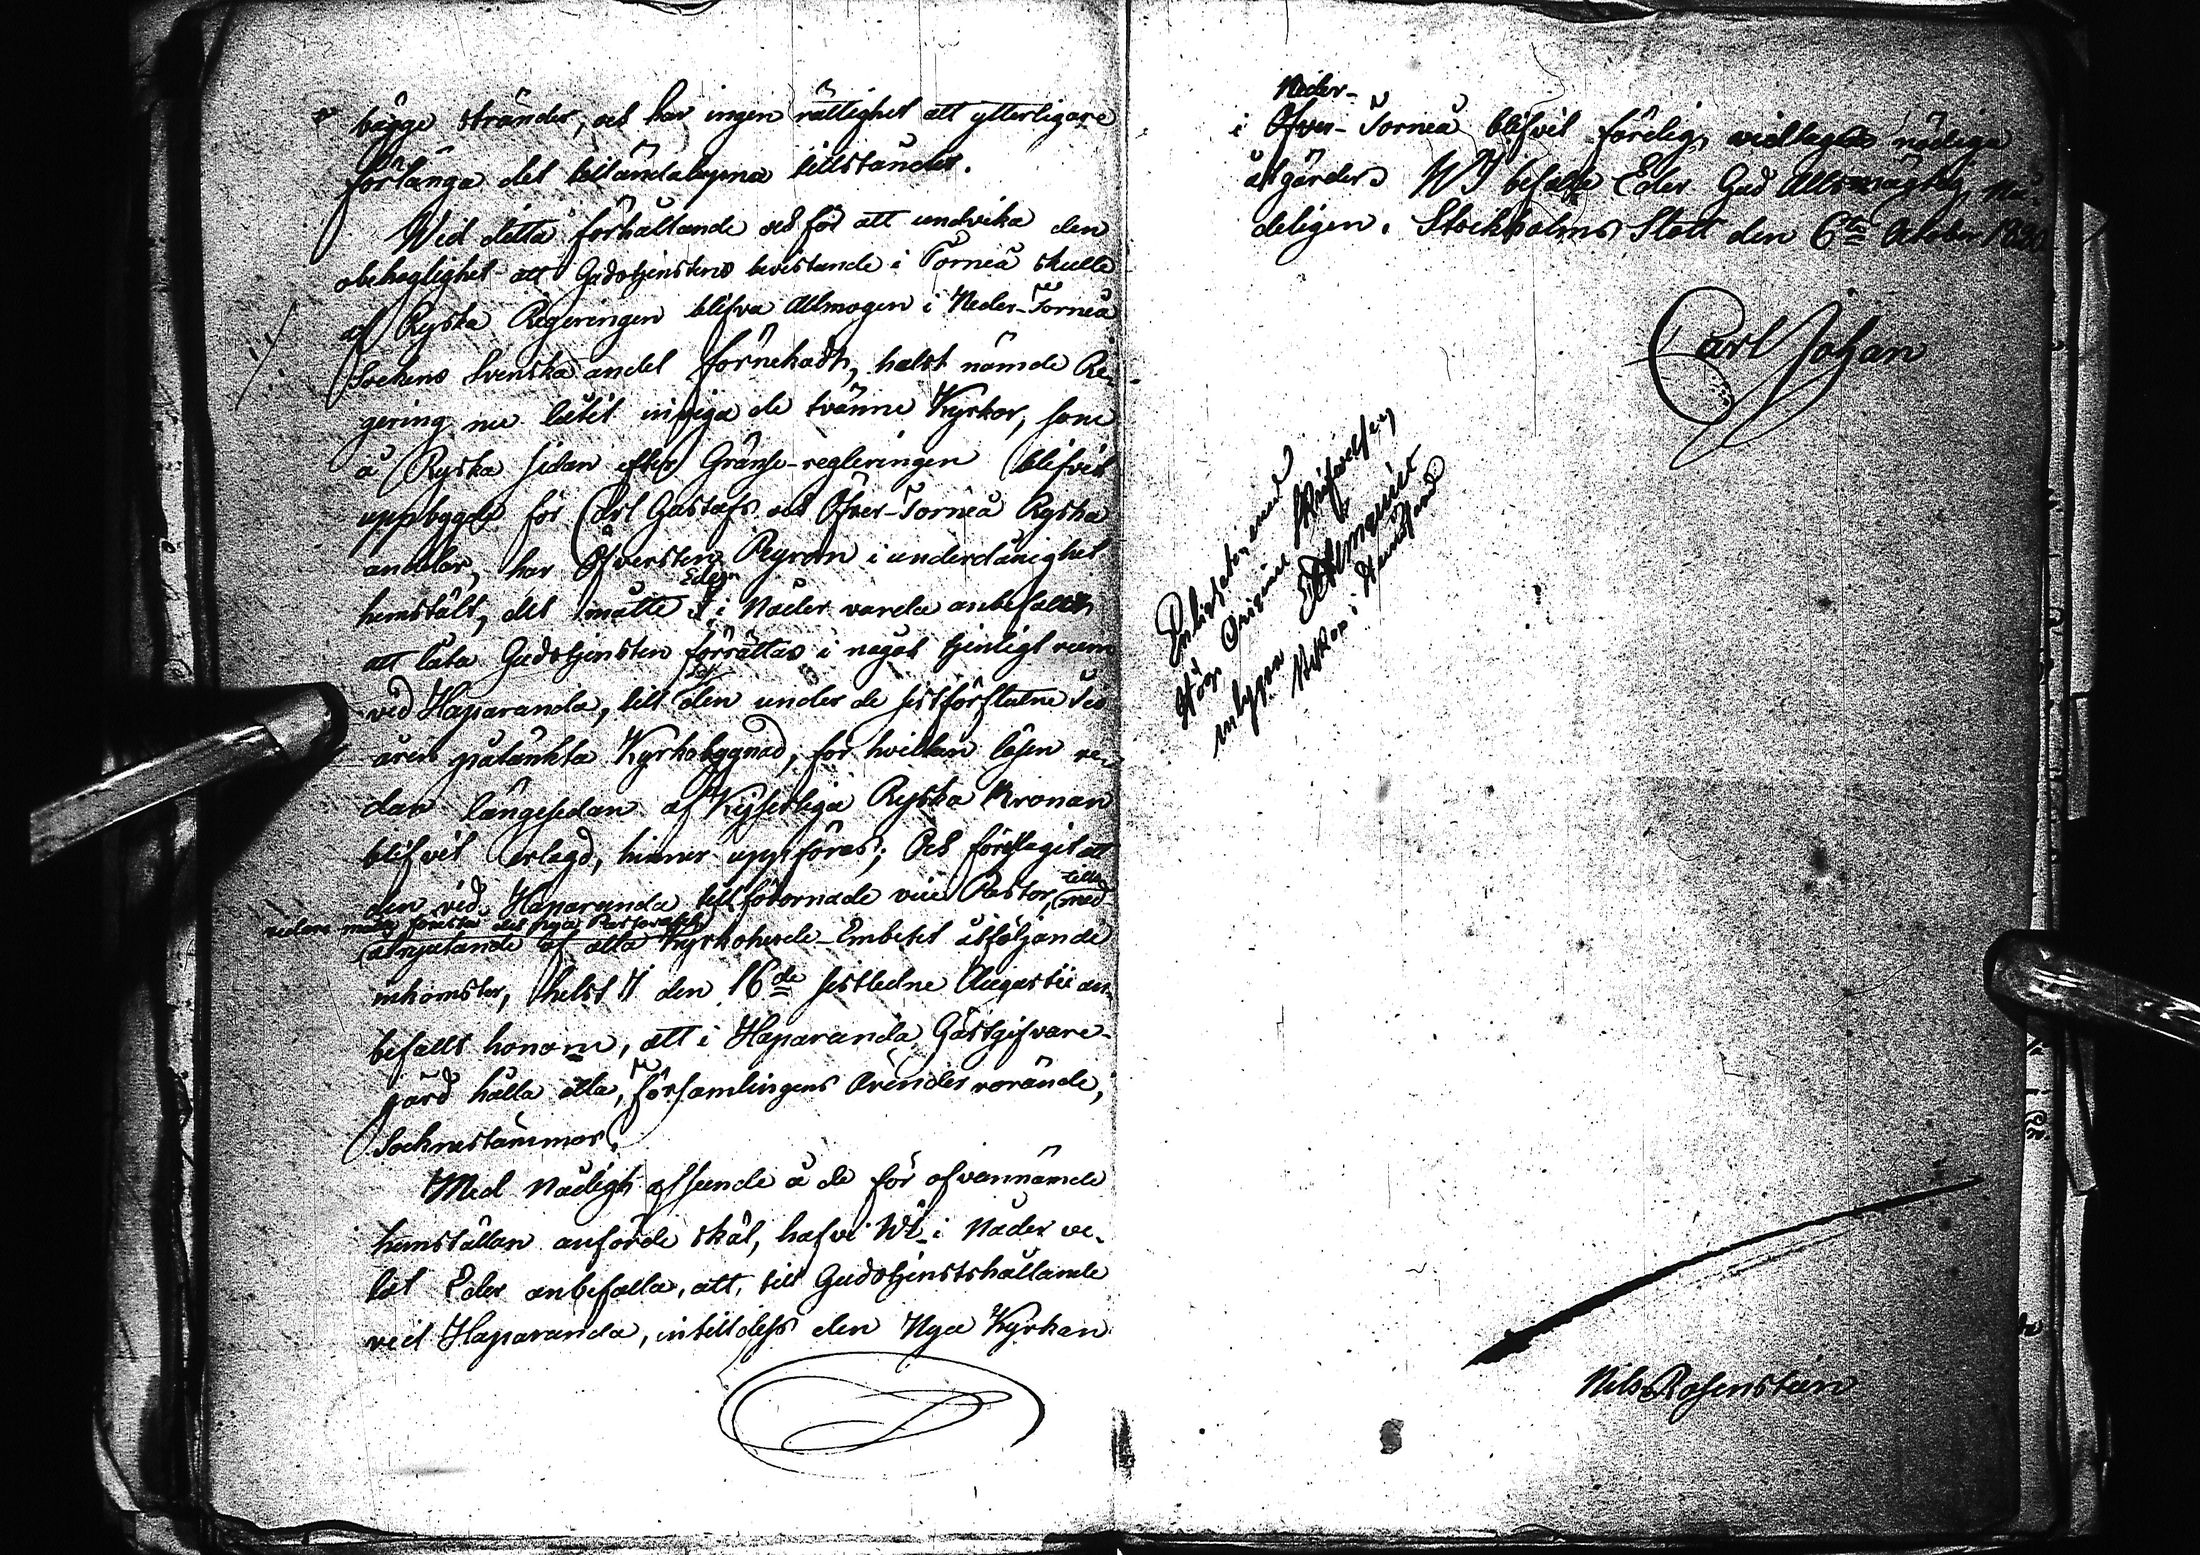 bägge stränder, och har ingen rättighet att ytterligare
förlänga det tillståndet.
Wid detta förhållande och för att undvika den
obehaglighet att Gudstjenstens bevistande i Torneå skulle
af Ryska Regeringen blifva Allmogen i Neder-Torneå
Sockens Svenska andel förnekadt, hälst nämde Re-
gering nu låtit inviga de tvänne Kyrkor, som
å Ryska sidan efter Gränse-regleringen blifvit
uppbygde för Carl Gustafs och Öfver-Torneå Ryska
andelar, har Öfversten Peyron i underdånighet
hemstält, det måtte Eder i Nåder varda anbefalt
att låta Gudstjensten förrättas i något tjenligt rum
vid Haparanda, till den under de sistförflutne tio
åren påtänkta Kyrkobyggnad, for hvilken lösen re-
dan längesedan af Kejserliga Ryska Kronan
blifvit erlagd, hinner uppföras; Och föreslagit att
den vid Haparanda tillförordnade vice Pastor, med
redan måtte förestå det nya Pastoratet
åtnjutande af alla Kyrkoherde-Embetet åtföljande
inkomster, helst I den 16de sistledne Augustii an-
befallt honom, att i Haparanda Gästgifvare-
gård hålla alla, församlingens ärender rörande,
Socknestämmor.
Med Nådigt afseende å de för ofvannämde
hemställan anförde skäl, hafve Wi i Nåder ve-
lat Eder anbefalla, att, till Gudstjenstshållande
vid Haparanda, intilldess den Nya Kyrkan
Neder-
i Öfver-Torneå blifvit färdig, vidtaga nödiga
åtgärder. Wi befalle Eder Gud Allsmägtig Nå-
deligen. Stockholms Slott den 6te October
Carl Johan
Originel Skrifvelsen
Nils Rosenstein